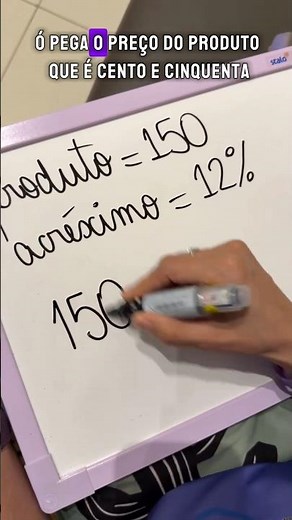 Ó PEGA O PREÇO DO PRODUTO
QUE É CENTO E CINQUENTA
stalo
produto = 150
acréximo = 12%
150